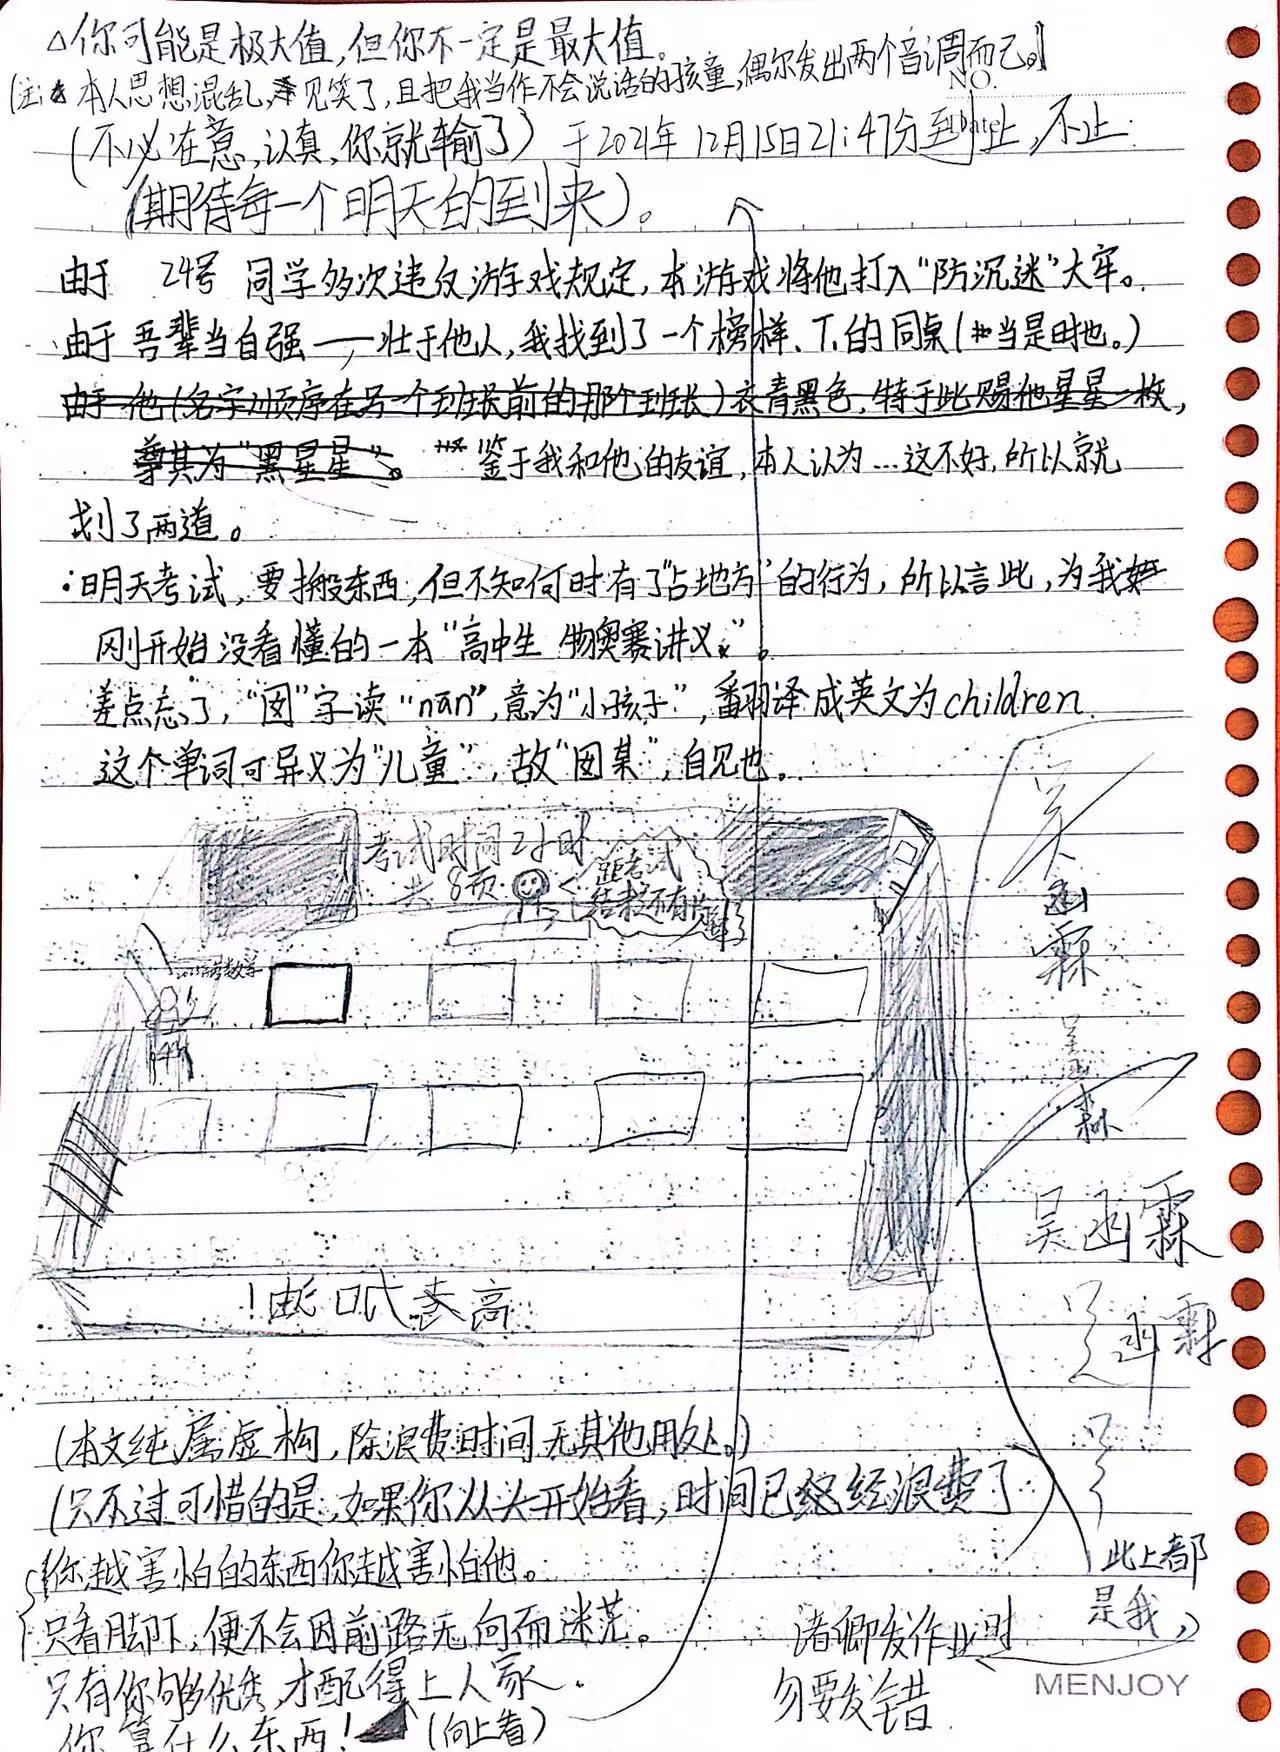 △你可能是极大值,但你不一定是最大值。
(注: 本人思想混乱,见笑了,且把我当作不会说话的孩童,偶尔发出两个音调而已。)
NO.
(不必在意,认真,你就输了) 于2021年12月15日21:47分到此止,不止.
Date
(期待每一个明天的到来)。
由于 24号 同学多次违反游戏规定,本游戏将他打入“防沉迷”大牢。
由于吾辈当自强——壮于他人,我找到了一个榜样、T.的同桌(当是时也。)
由于他(名字顺序在另一个班长前的那个班长)衣青黑色,特于此赐他星星一枚,
尊其为“黑星星”。 鉴于我和他的友谊,本人认为…这不好,所以就
划了两道。
·明天考试,要搬东西,但不知何时有了“占地方”的行为,所以言此,为我
刚开始没看懂的一本“高中生 物奥赛讲义”。
差点忘了,“囡”字读“nān”,意为“小孩子”,翻译成英文为children.
这个单词可异义为“儿童”,故“囡某”,自见也。
考试时间2小时
共8页
距考试
结束还有
吴函霖
吴函霖
吴函霖
吴函霖
(本文纯属虚构,除浪费时间无其他用处。)
(只不过可惜的是,如果你从头开始看,时间已经经浪费了
你越害怕的东西你越害怕他。
只看脚下,便不会因前路无向而迷茫。
只有你够优秀,才配得上人家.
你算什么东西!
(向上看)
此上都
是我,
诸卿发作业时
勿要发错.
MENJOY